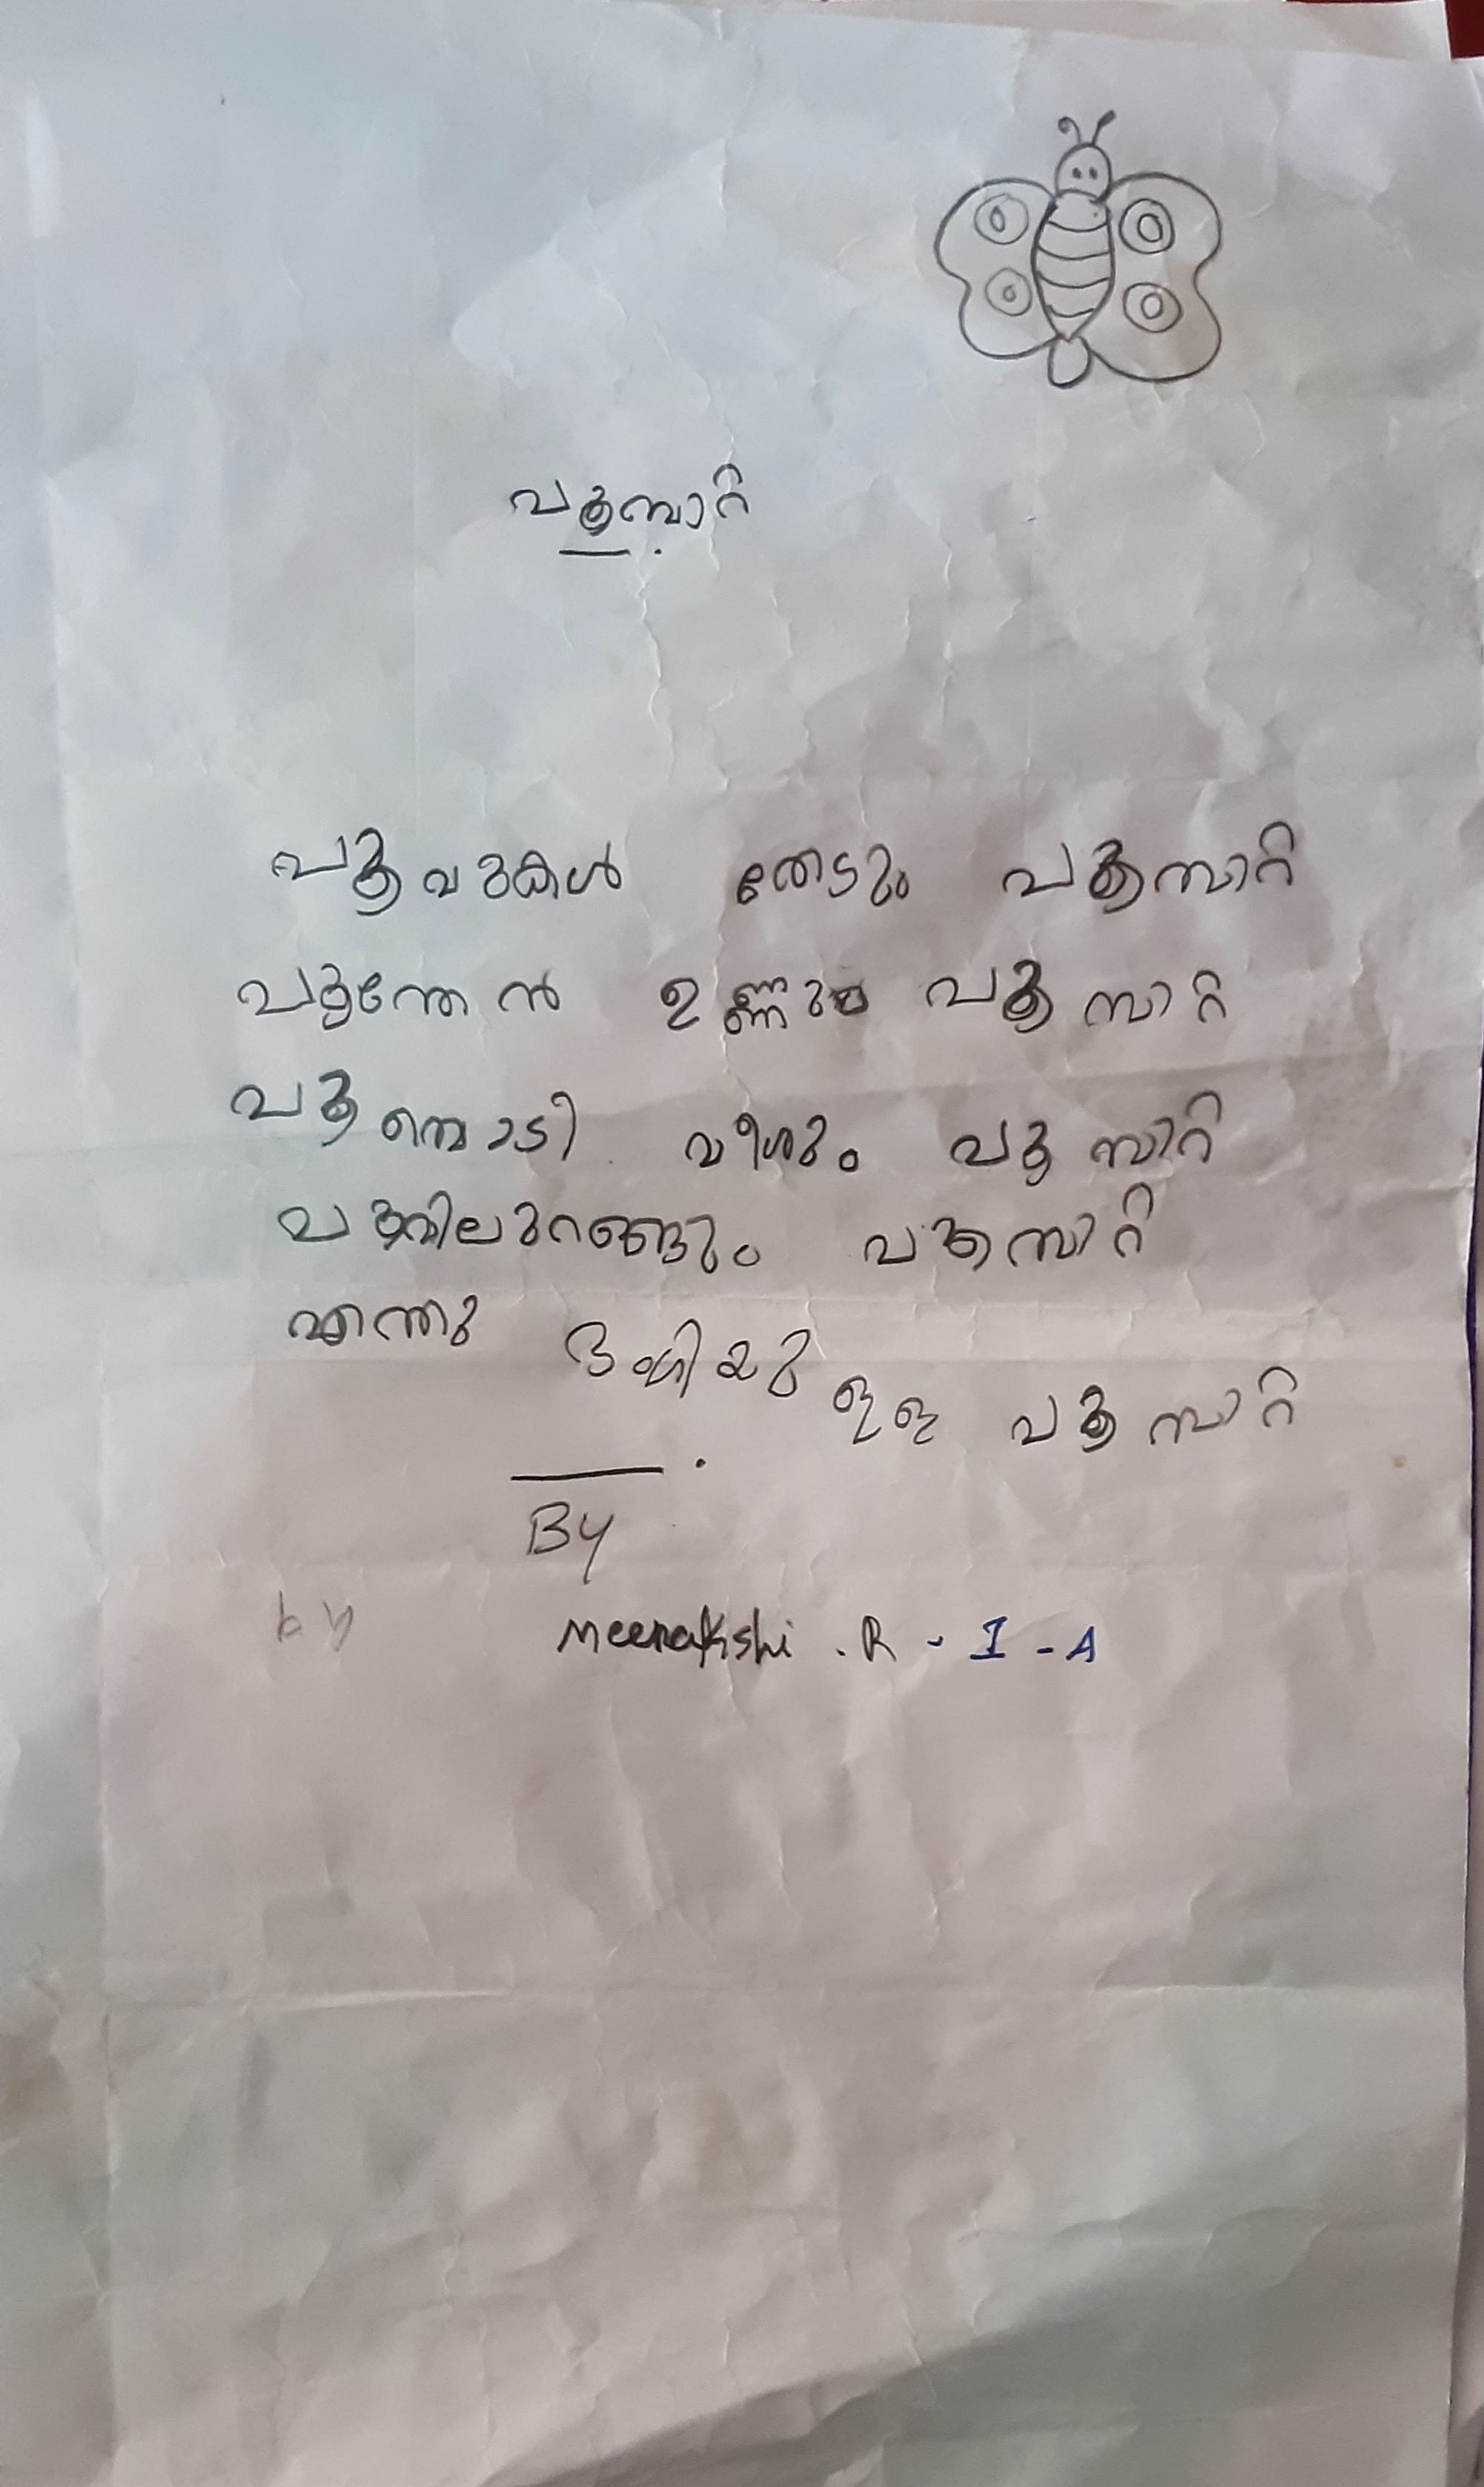 പൂമ്പാറ്റ
പൂവുകൾ തേടും പൂമ്പാറ്റ
പൂന്തേൻ ഉണ്ണും പൂമ്പാറ്റ
പൂമ്പൊടി വീശും പൂമ്പാറ്റ
പൂവിലുറങ്ങും പൂമ്പാറ്റ
എന്തു ഭംഗിയുള്ള പൂമ്പാറ്റ
By
by Meenakshi . R - I - A